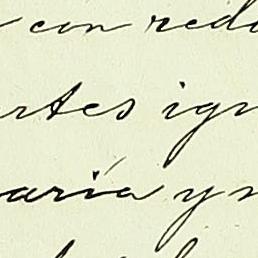 con redu
rtes igu
aría y n